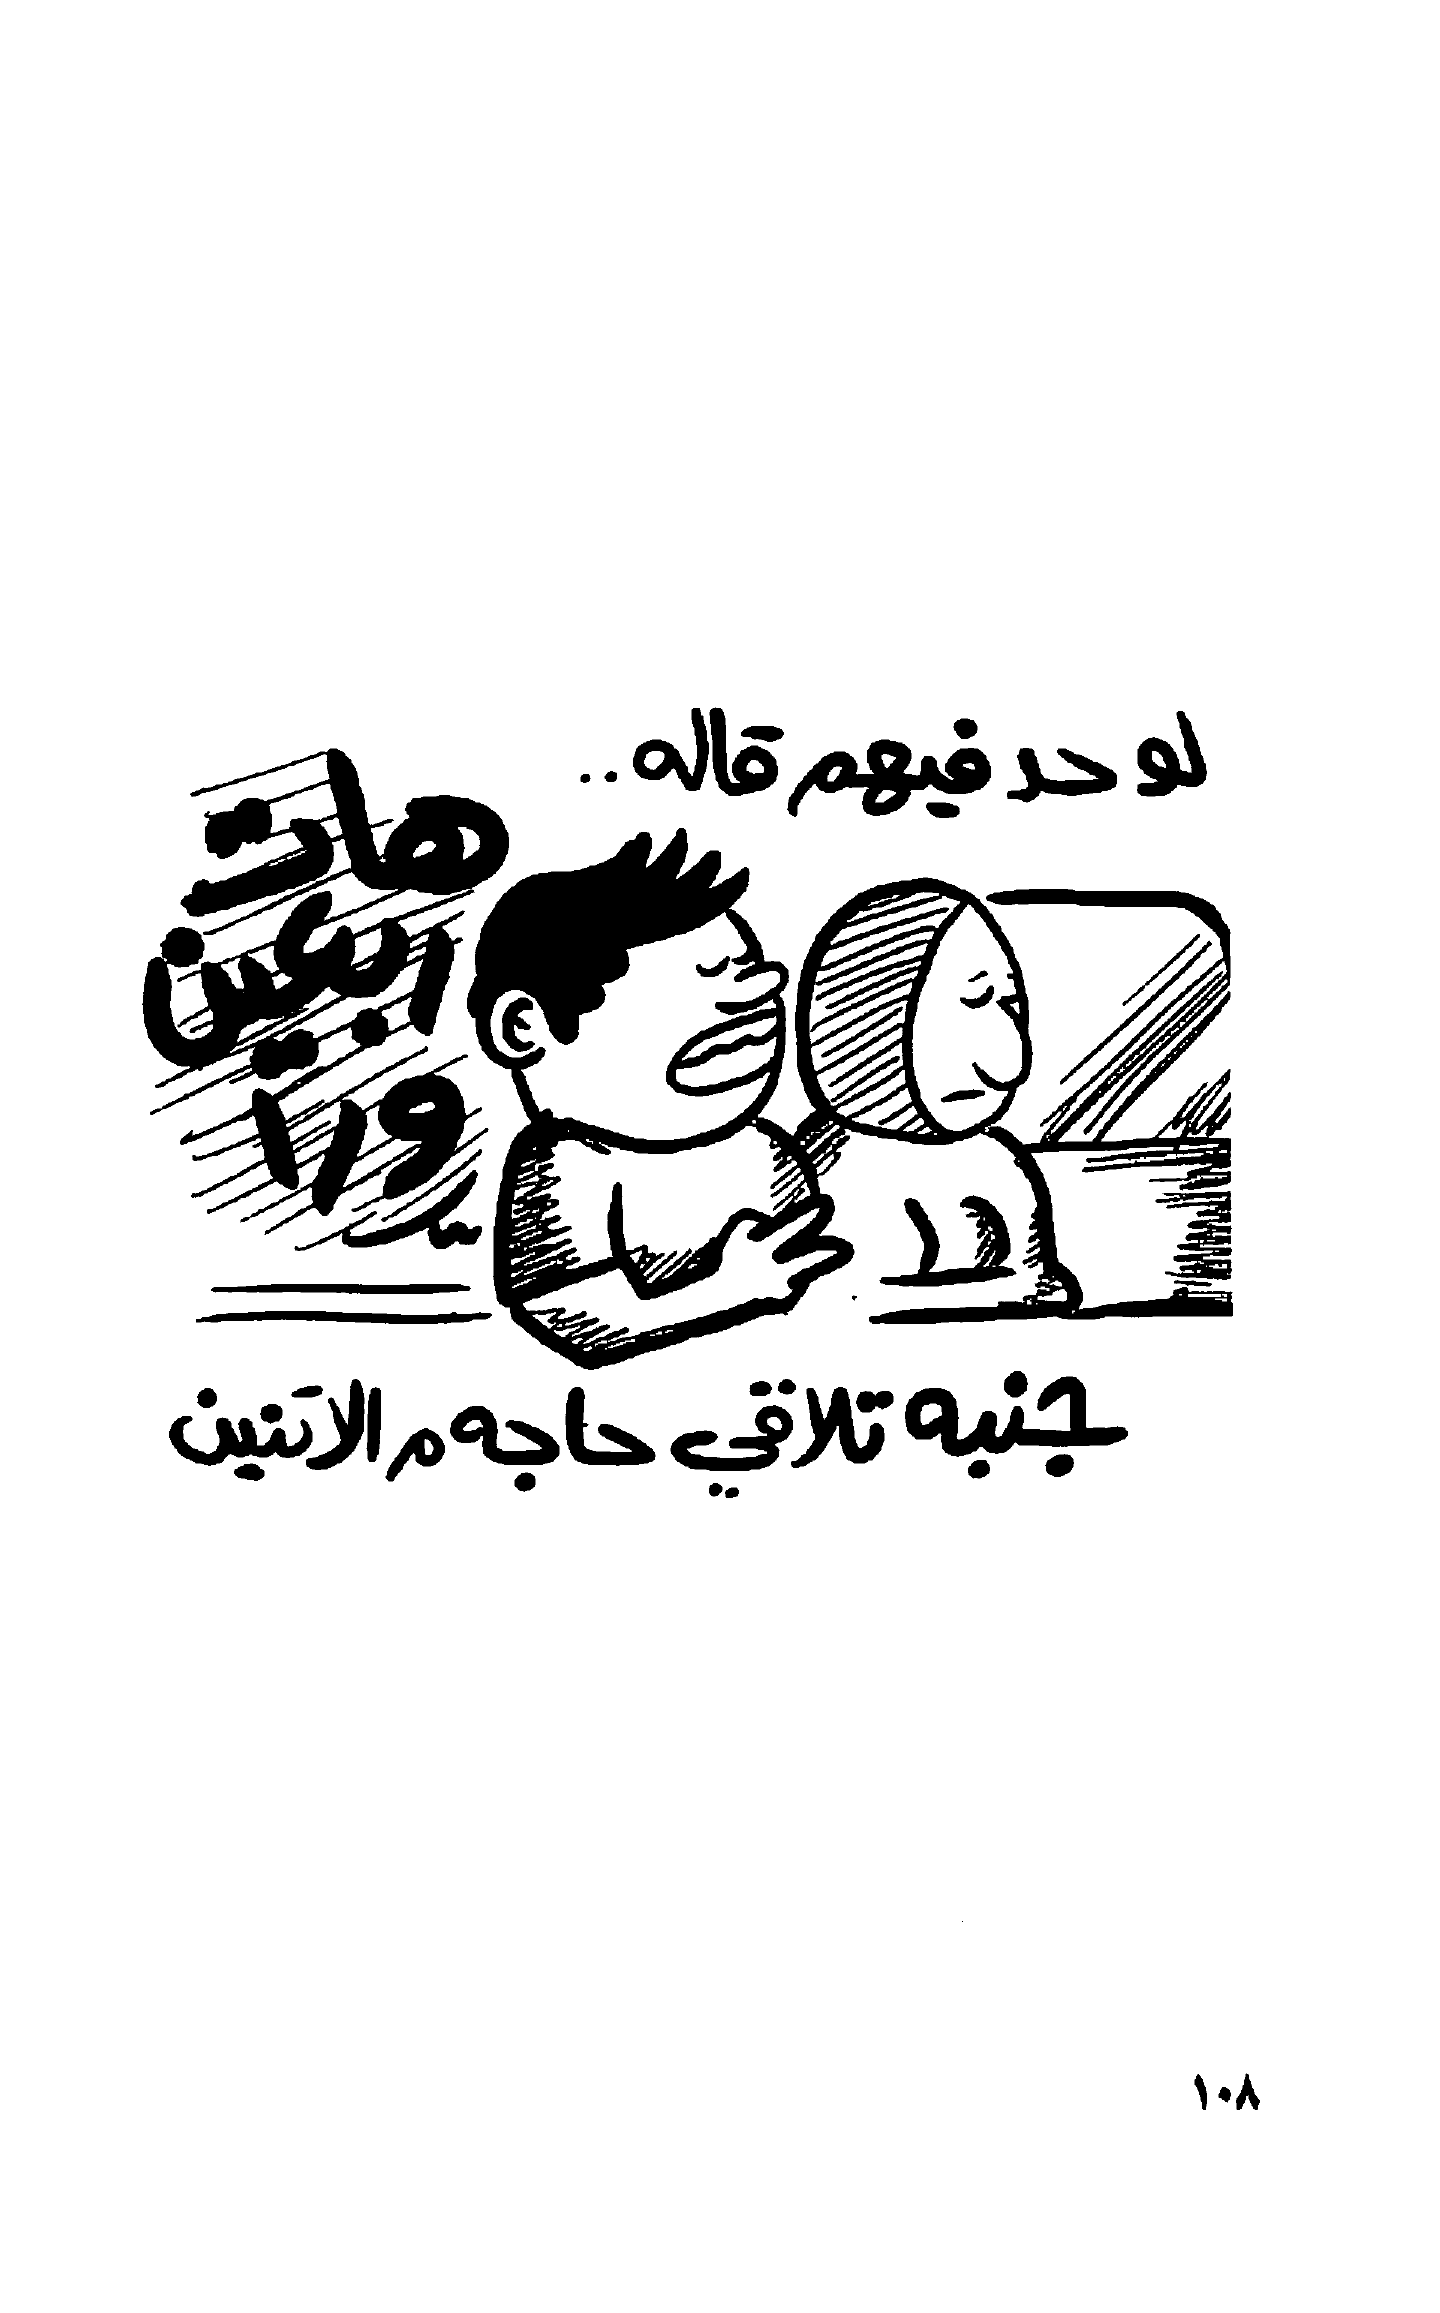 لو حد فيهم قاله ..
هات
اربعين
ورا
جنبه تلاقي حاجه م الاتنين
١٠٨